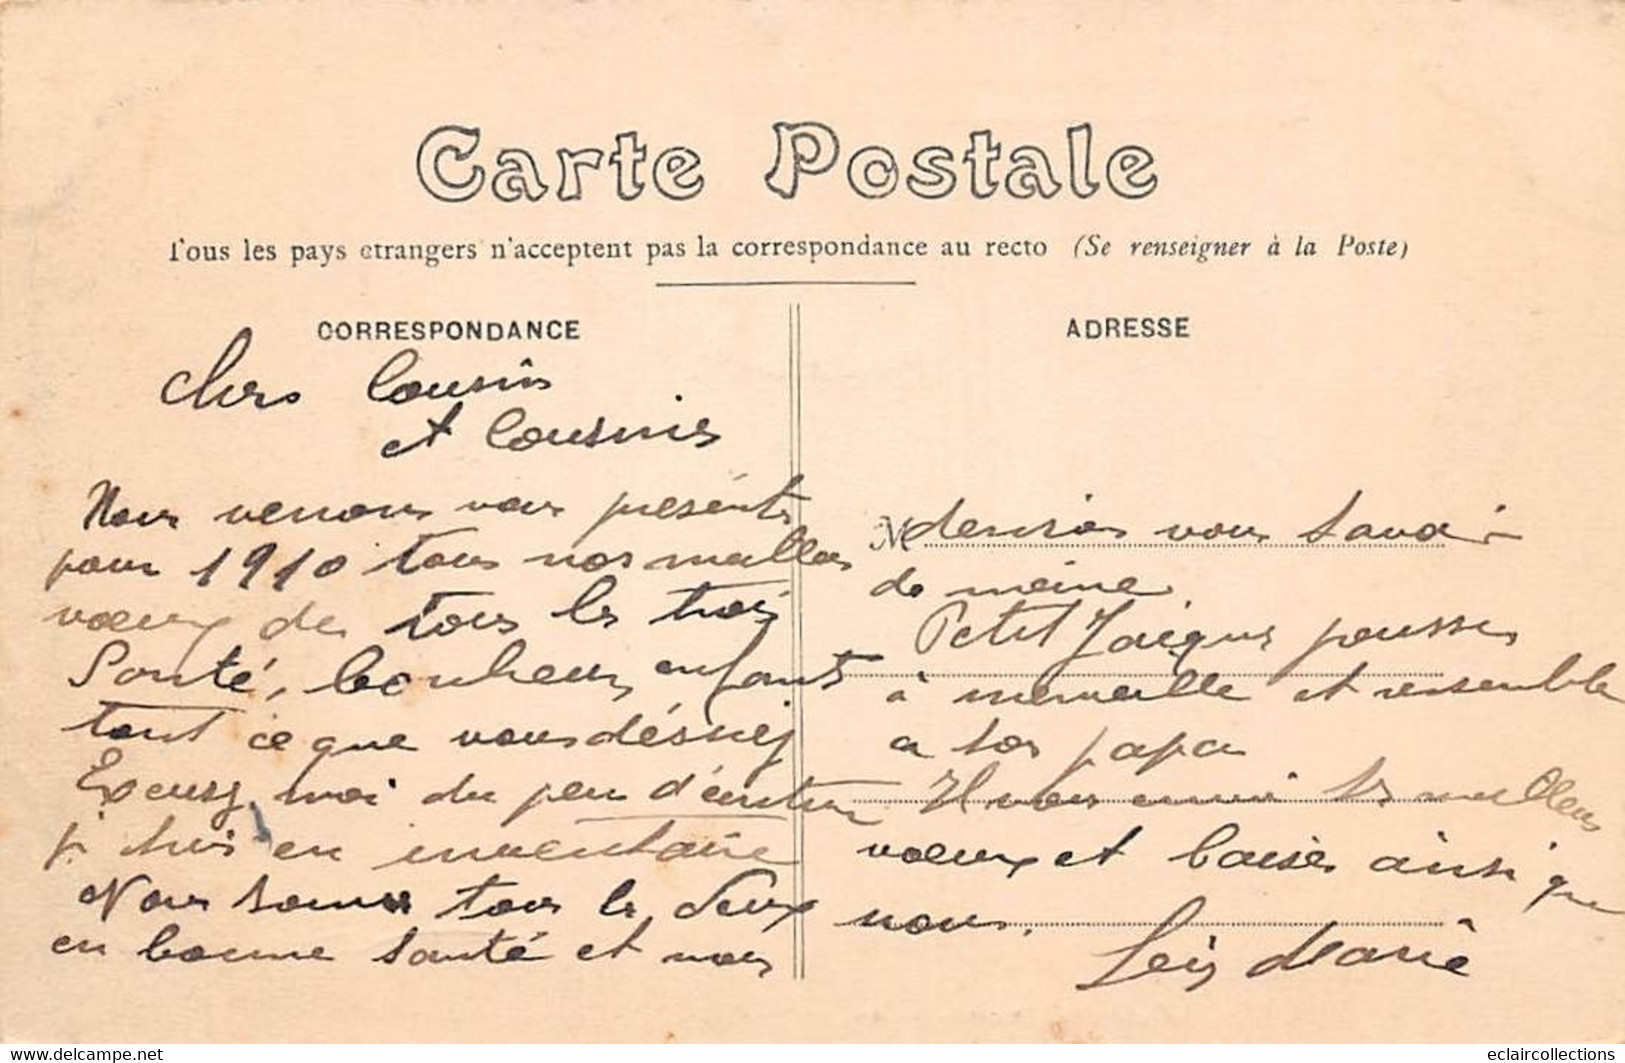 Carte Postale
Tous les pays etrangers n'acceptent pas la correspondance au recto (Se renseigner à la Poste)
CORRESPONDANCE
Chers Cousins
et Cousines
Nous venons vous présenter
pour 1910 tous nos meilleurs
voeux de tous les trois
Santé, bonheur, enfants
tout ce que vous désiriez
Excusez moi du peu d'écriture
je suis en inventaire
Nous sommes tous les deux
en bonne santé et vous
ADRESSE
M
desirons vous savoir
de meme
Petit Jacques pousse
à merveille et ressemble
a son papa
Il vous envoie ses meilleurs
voeux et baisers ainsi que
nous.
Marie
eclaircollections
delcampe.net